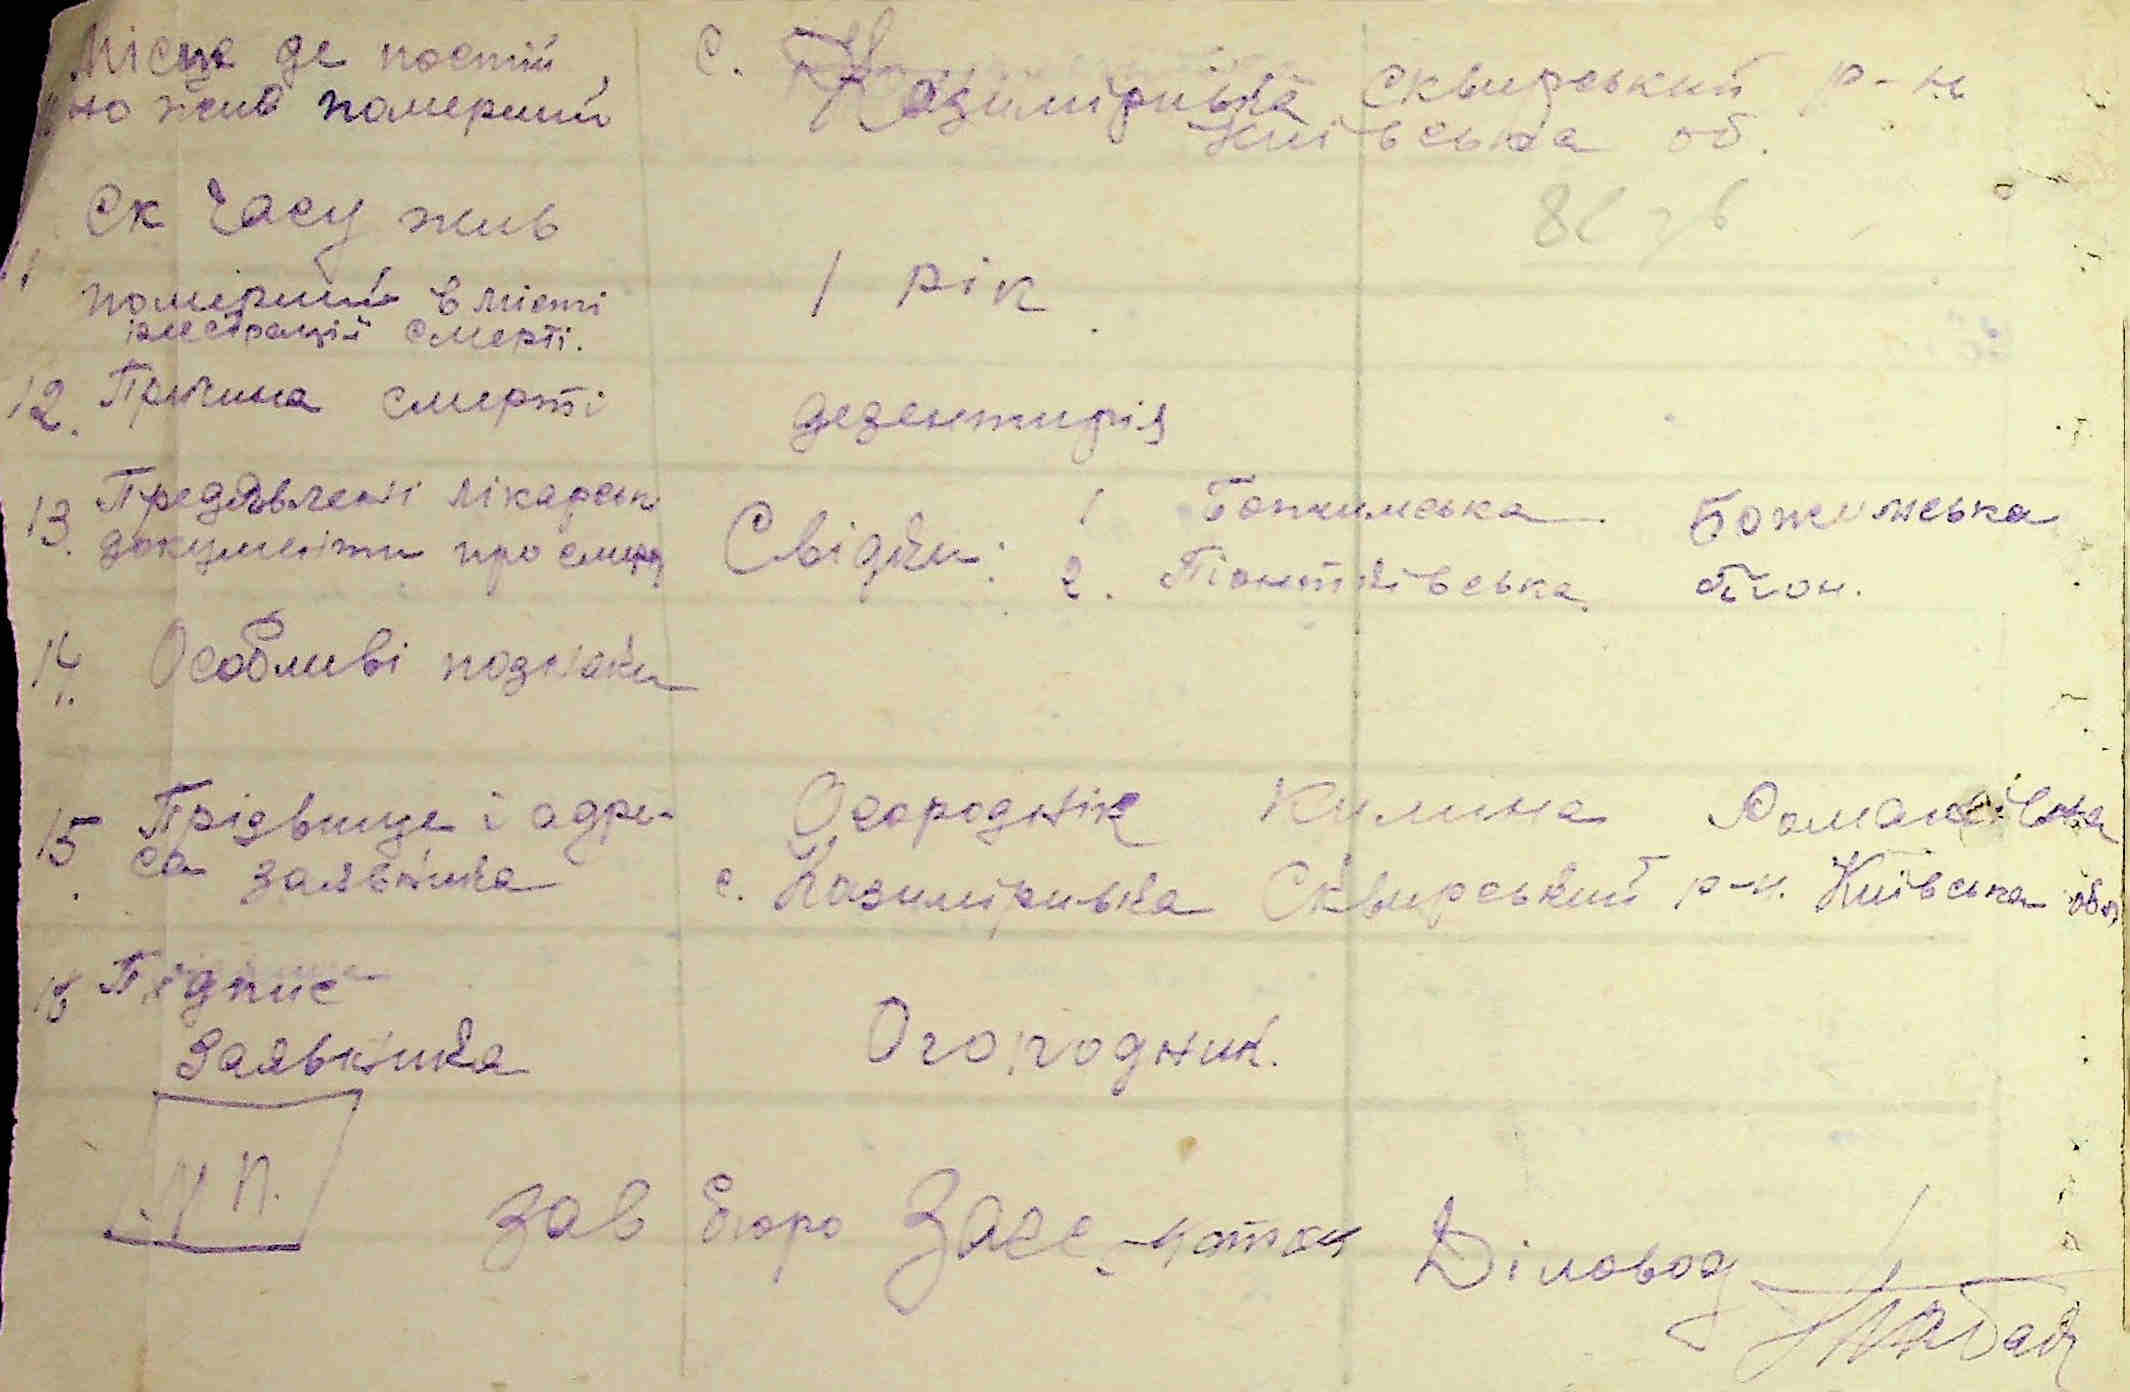 Місце де постій
но жив померший
с. Казимірівка Сквирський р-н
Київська об.
Ск часу жив
1 рік
померший в місті
смерті.
12. Причина смерті
дезентирія
13. Предявлені лікарськ
документи про смерт
Свідки: 1 Божимська Божимська
2. Піонтківська Піон.
14. Особливі познаки
15. Прізвище і адре-
са заявника
Огороднік Килина Романівна
с. Казимірівка Сквирський р-н. Київська обл
16 Підпис
Заявника
Огородник.
М П.
Зав бюро Загс Діловод